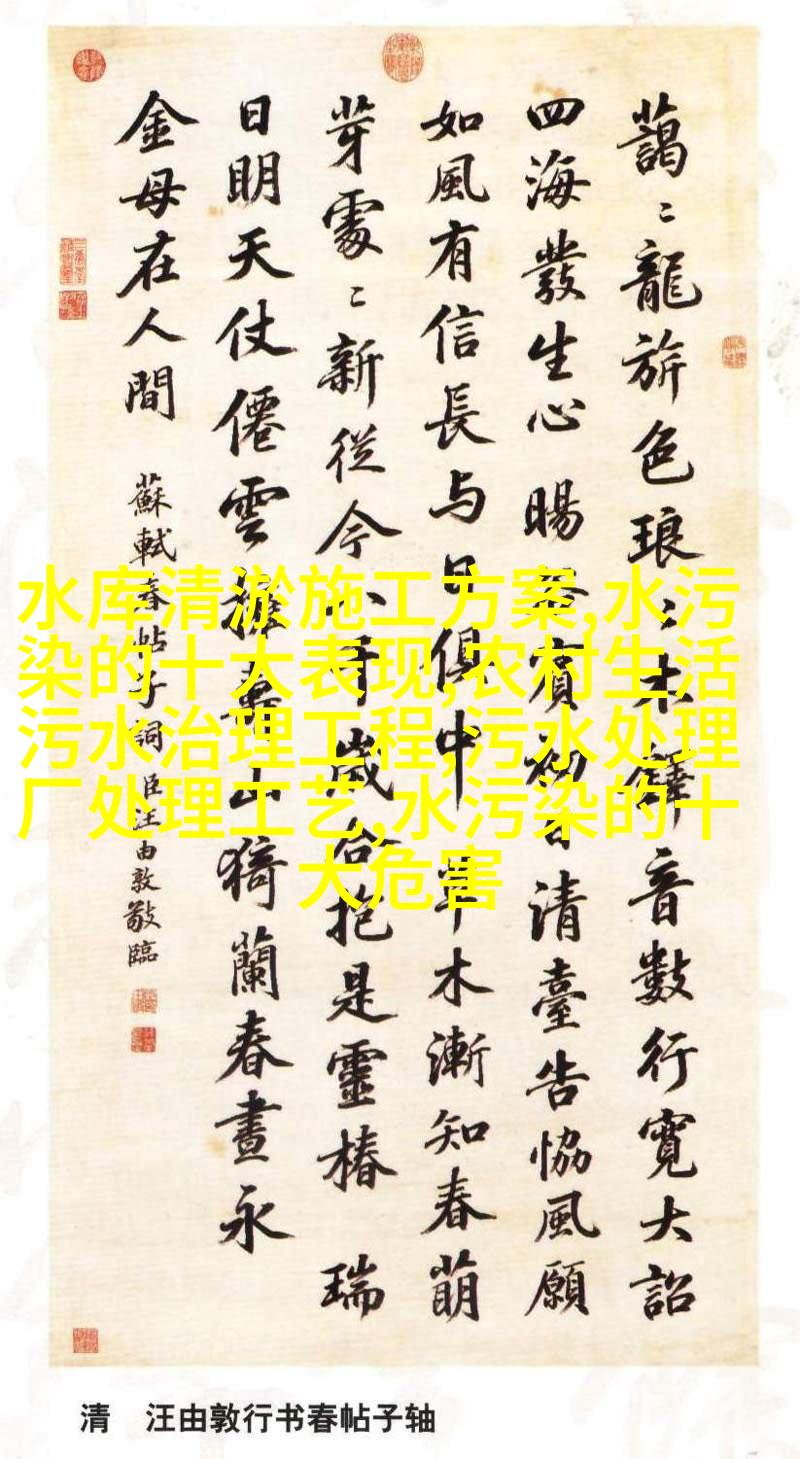 藹〻龍旂色琅〻木鐸音數行寬大詔
四海發生心 暘谷賓初日清臺告協風願
如風有信長与日俱中 草木漸知春萌
芽處〻新從今八千歲合抱是靈椿 瑞
日明天仗僊雲擁壽山猗蘭春晝永
金母在人間
蘇軾春帖子詞 臣汪由敦敬臨
水库清淤施工方案,水污
染的十大表现,农村生活
污水治理工程,污水处理
厂处理工艺,水污染的十
大危害
清 汪由敦行书春帖子轴